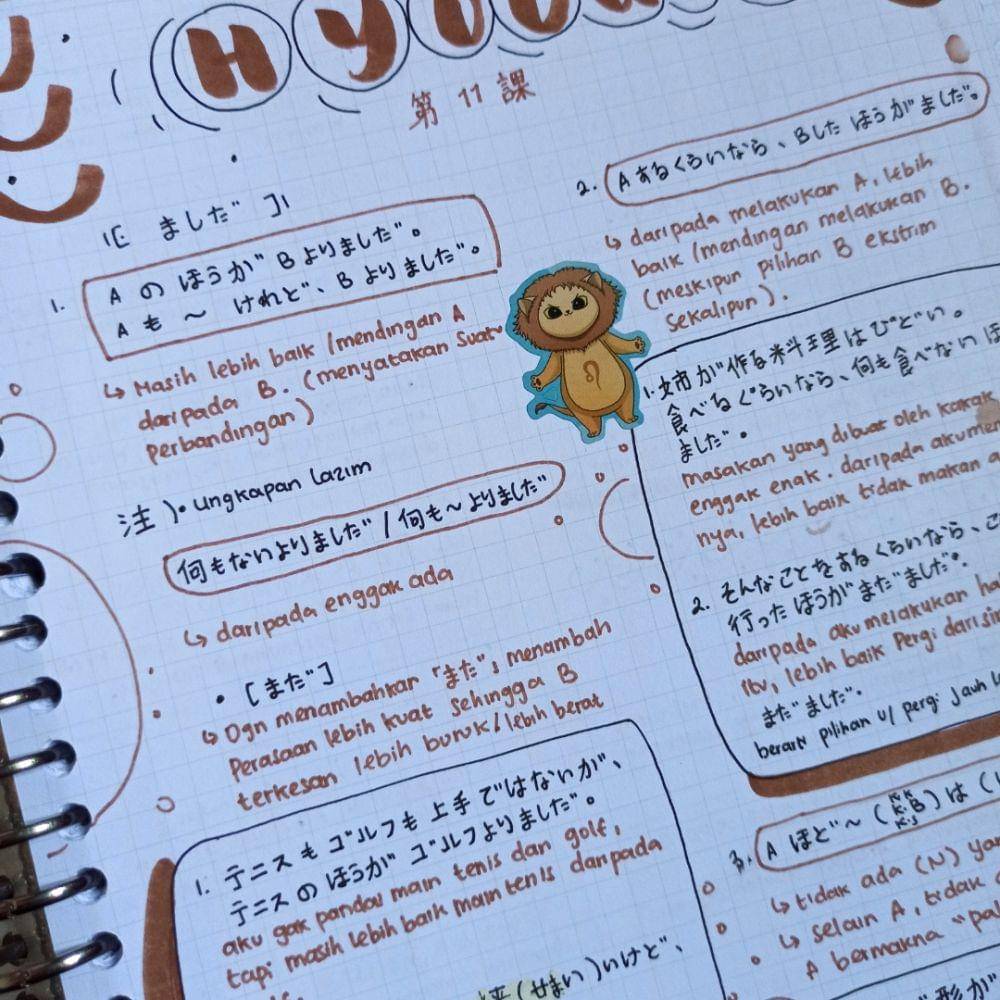 第 11 課
ました゛
1. A の ほうが B よりました゛。
A も ~ けれど、B よりました゛。
↳ Masih lebih baik /mendingan A
daripada B. (menyatakan suatu
perbandingan)
注 )• ungkapan lazim
何もないよりました゛/ 何も~よりました゛
↳ daripada enggak ada
• [また゛]
↳ Dgn menambahkan 「また゛」 menambah
perasaan lebih kuat sehingga B
terkesan lebih buruk/lebih berat
1. テニスも ゴルフも 上手ではないが、
テニスの ほうが ゴルフよりました゛。
aku gak pandai main tenis dan golf,
tapi masih lebih baik main tenis daripada
(せまい)いけど、
2. A するくらいなら、Bした ほうが ました゛。
↳ daripada melakukan A, lebih
baik /mendingan melakukan B.
(meskipun pilihan B ekstrim
sekalipun).
1. 姉が作る料理はひどい。
食べるぐらいなら、何も食べない ほ
ました゛。
masakan yang dibuat oleh kakak
enggak enak. daripada aku
nya, lebih baik tidak makan
2. そんなことをするくらいなら、こ
行った ほうがまた゛ました゛。
daripada aku melakukan
itu, lebih baik pergi dari
また゛ました゛.
berarti pilihan u/ pergi jauh
3. A ほど~ ( B ) は (
↳ tidak ada (N)
↳ selain A, tidak
A bermakna "
形が